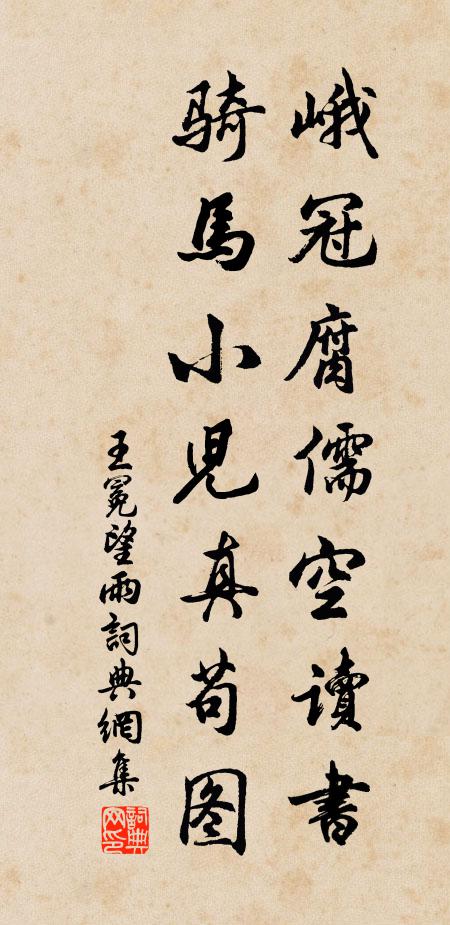 峨冠腐儒空讀書
騎馬小児真苟图
王冕望雨詞典網集
詞典网印